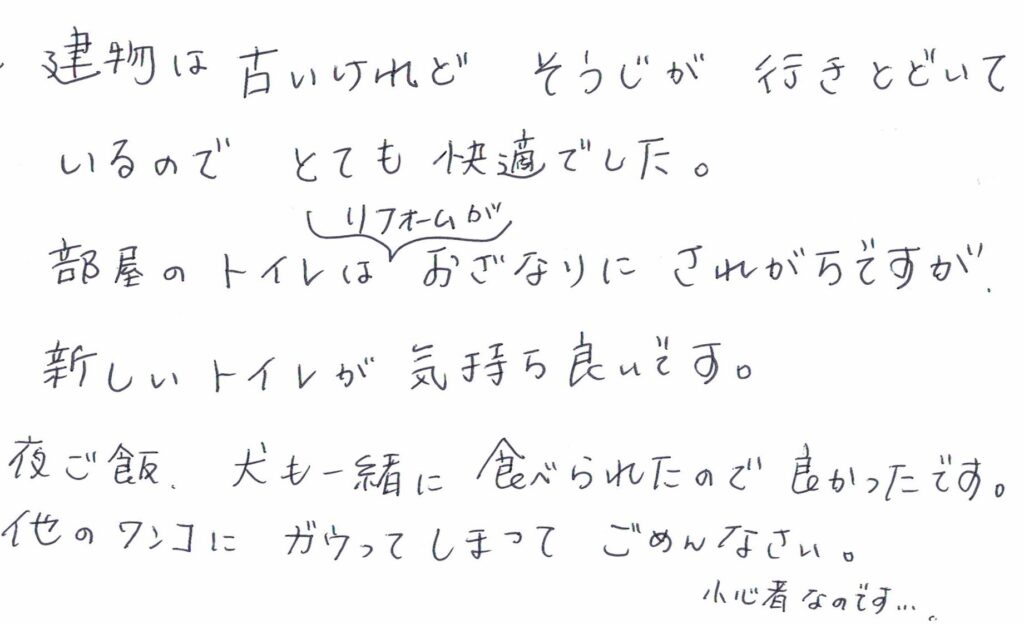 建物は古いけれど そうじが 行きとどいて
いるので とても 快適でした。
リフォームが
部屋のトイレは おざなりに されがちですが、
新しいトイレが 気持ち良いです。
夜ご飯、犬も一緒に 食べられたので 良かったです。
他のワンコに ガウってしまって ごめんなさい。
小心者なのです…。